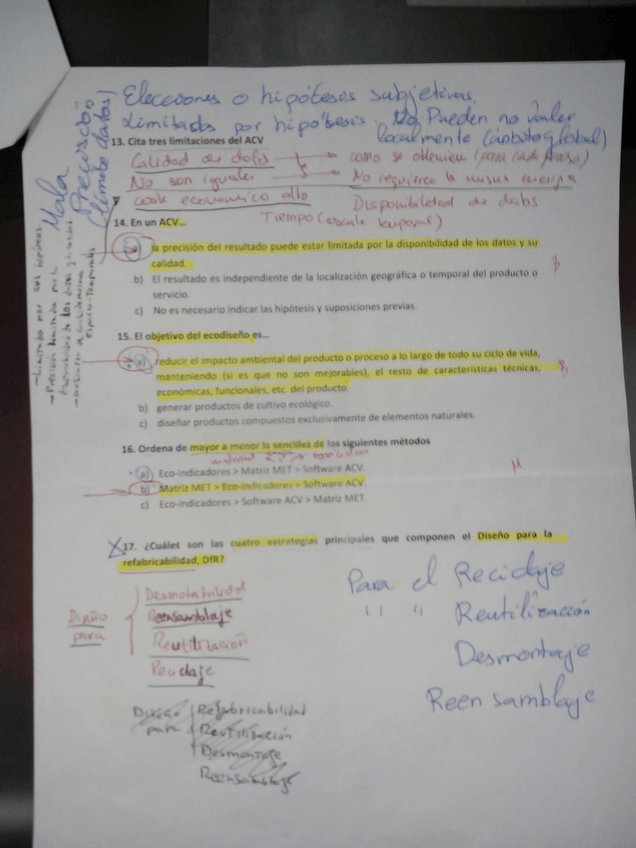 Elecciones o hipótesis subjetivas
Limitados por hipótesis. No. Pueden no valer
localmente (ámbito global)
Mala
Precisión
(límite datos)
13. Cita tres limitaciones del ACV
Calidad de datos
como se obtienen
No son iguales
No requieren la misma energía
coste economico alto
Disponibilidad de datos
Tiempo (escala temporal)
14. En un ACV...
a) la precisión del resultado puede estar limitada por la disponibilidad de los datos y su
calidad.
b) El resultado es independiente de la localización geográfica o temporal del producto o
servicio.
c) No es necesario indicar las hipótesis y suposiciones previas.
- Limitado por sus hipótesis
- Precisión limitada por la
disponibilidad de los datos y calidad
15. El objetivo del ecodiseño es...
a) reducir el impacto ambiental del producto o proceso a lo largo de todo su ciclo de vida,
manteniendo (si es que no son mejorables), el resto de características técnicas,
económicas, funcionales, etc. del producto.
b) generar productos de cultivo ecológico.
c) diseñar productos compuestos exclusivamente de elementos naturales.
16. Ordena de mayor a menor la sencillez de los siguientes métodos
a) Eco-indicadores > Matriz MET > Software ACV.
b) Matriz MET > Eco-indicadores > Software ACV
c) Eco-indicadores > Software ACV > Matriz MET.
17. ¿Cuáles son las cuatro estrategias principales que componen el Diseño para la
refabricabilidad, DfR?
Diseño
para
Desmontabilidad
Reensamblaje
Reutilización
Reciclaje
Para el Reciclaje
" " Reutilización
Desmontaje
Reensamblaje
Diseño
para
Refabricabilidad
Reutilización
Desmontaje
Reensamblaje